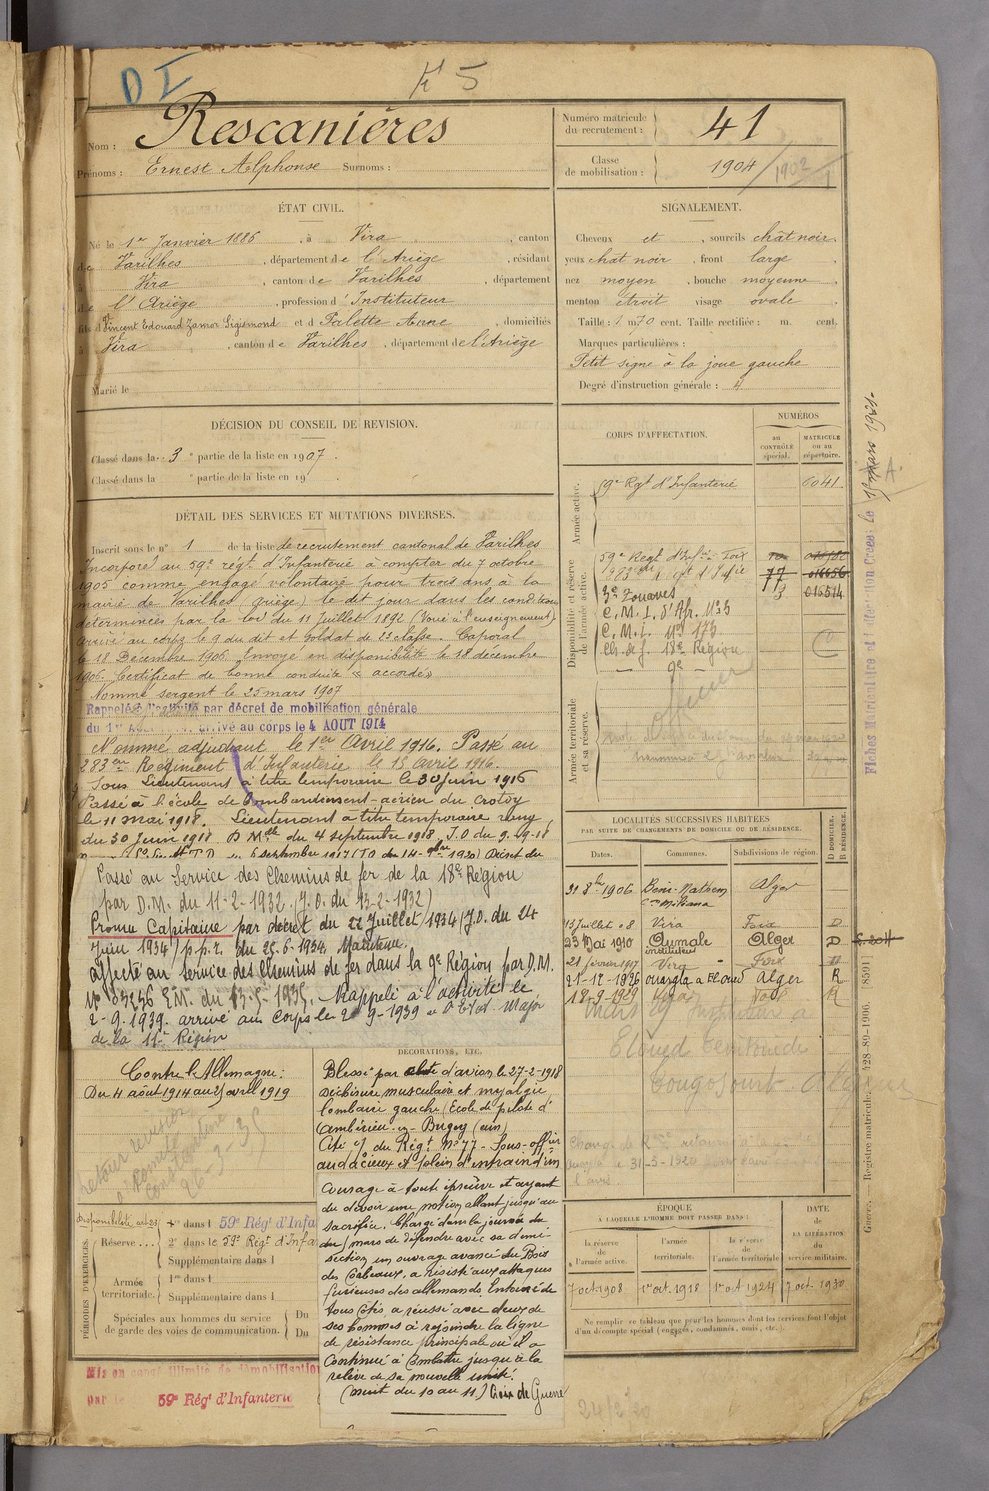 D I
K 5
Nom : Rescanières
Prénoms : Ernest Alphonse Surnoms :
Numéro matricule du recrutement : 41
Classe de mobilisation : 1904 / 1902
ÉTAT CIVIL.
Né le 1er Janvier 1886, à Vira, canton
de Varilhes, département de l'Ariège, résidant
à Vira, canton de Varilhes, département
de l'Ariège, profession d'Instituteur
fils de Vincent Edouard Zamor Sigismond et de Palette Anne, domiciliés
à Vira, canton de Varilhes, département de l'Ariège
Marié le
SIGNALEMENT.
Cheveux et, sourcils chât noir,
yeux chat noir, front large
nez moyen, bouche moyenne,
menton étroit visage ovale
Taille : 1 m 70 cent. Taille rectifiée : m. cent.
Marques particulières :
Petit signe à la joue gauche
Degré d'instruction générale : 4
DÉCISION DU CONSEIL DE REVISION.
Classé dans la 3e partie de la liste en 1907.
Classé dans la e partie de la liste en 19
DÉTAIL DES SERVICES ET MUTATIONS DIVERSES.
Inscrit sous le n° 1 de la liste de recrutement cantonal de Varilhes
Incorporé au 59e régt d'Infanterie à compter du 7 octobre
1905 comme engagé volontaire pour trois ans, à la
mairie de Varilhes (Ariège) le dit jour dans les conditions
déterminées par la loi du 11 Juillet 1892 (Voué à l'enseignement)
arrivé au corps le 9 du dit et soldat de 2e classe. Caporal
le 18 Décembre 1906. Envoyé en disponibilité le 18 décembre
1906. Certificat de bonne conduite « accordé »
Nommé sergent le 25 mars 1907
Rappelé à l'activité par décret de mobilisation générale
du 1er Août arrivé au corps le 4 AOUT 1914
Nommé adjudant le 1er Avril 1916. Passé au
283em Régiment d'Infanterie le 15 avril 1916.
Sous Lieutenant à titre temporaire le 30 juin 1916
Passé à l'école de bombardement-aérien du Crotoy
le 11 mai 1918. Lieutenant à titre temporaire rang
du 30 Juin 1918 D Mlle du 4 septembre 1918 J.O du 9-9-18
Passé au Service des Chemins de fer de la 18e Région
par D.M. du 11-2-1932. (J.O. du 13-2-1932)
Promu Capitaine par décret du 22 Juillet 1934 (J.O. du 24
Juin 1934) p.p.r. du 25.6.1934. Maintenu.
affecté au service des Chemins de fer dans la 9e Région par D.M.
E.M. du 13-5-1935. Rappelé à l'activité le
2-9-1939. arrivé au Corps le 2-9-1939 Etat-Major
de la 11e Région
CORPS D'AFFECTATION.
NUMÉROS
au CONTRÔLE spécial.
MATRICULE ou au répertoire.
Armée active.
59e Rgt d'Infanterie 6041
Disponibilité et réserve de l'armée active.
59e Regt d'Infie Foix
283em
77
3e Zouaves 3 015514
C. M. I. d'Afr. N° 3
C. M. I. N° 173
Ch. de f. 18e Région
— 9e —
C
Armée territoriale et sa réserve.
officier
Fiches Matriculaire et d'Affection Créés le 15 Mars 1921
LOCALITÉS SUCCESSIVES HABITÉES
PAR SUITE DE CHANGEMENTS DE DOMICILE OU DE RÉSIDENCE.
Dates. Communes. Subdivisions de région. D DOMICILE. R RÉSIDENCE.
21 8bre 1906 Alger
Miliana
13 Juillet 08 Vira Foix D
23 Mai 1910 Aumale Alger D
instituteur
21 février 1917 Vira Foix D
21-12-1926 ouargla a El oued Alger R
18-9-1929 R
Mars 29 Inspecteur à
El oued territoire de
Tougourt Algérie
Contre l'Allemagne :
Du 4 août 1914 au 25 avril 1919
26-3-35
DÉCORATIONS, ETC.
Blessé par chute d'avion le 27-2-1918
Déchirure musculaire et myalgie
lombaire gauche (Ecole de pilote d'
Ambérieu-en-Bugey (Ain)
Cité o/ du Régt N° 77 - Sous-officier
audacieux et plein d'entrain d'un
Courage à toute épreuve et ayant
du devoir une notion allant jusqu'au
sacrifice. Chargé dans la journée du
du / mars de défendre avec sa demi-
section un ouvrage avancé du Bois
des Corbeaux, a résisté aux attaques
furieuses des allemands. Entouré de
tous côtés a réussi avec deux de
ses hommes à rejoindre la ligne
de résistance principale où il a
continué à combattre jusqu'à la
relève de sa nouvelle unité.
(nuit du 10 au 11) Croix de Guerre
PÉRIODES D'EXERCICES.
Disponibilité art 23
Réserve... 1re dans l 59e Régt d'Infa
2e dans le 59e Régt d'Infa
Supplémentaire dans l
Armée territoriale. 1re dans l
Supplémentaire dans l
Spéciales aux hommes du service de garde des voies de communication. Du
Du
Mis en congé illimité de démobilisation
par le 59e Régt d'Infanterie
ÉPOQUE
A LAQUELLE L'HOMME DOIT PASSER DANS :
la réserve de l'armée active.
l'armée territoriale.
la réserve de l'armée territoriale
DATE de LA LIBÉRATION du service militaire.
7 oct 1908 1er oct. 1918 1er oct 1924 7 oct. 1930
Ne remplir ce tableau que pour les hommes dont les services font l'objet
d'un décompte spécial (engagés, condamnés, omis, etc.).
Guerre. — Registre matricule. 428-89-1906. [8591]
24/2/20